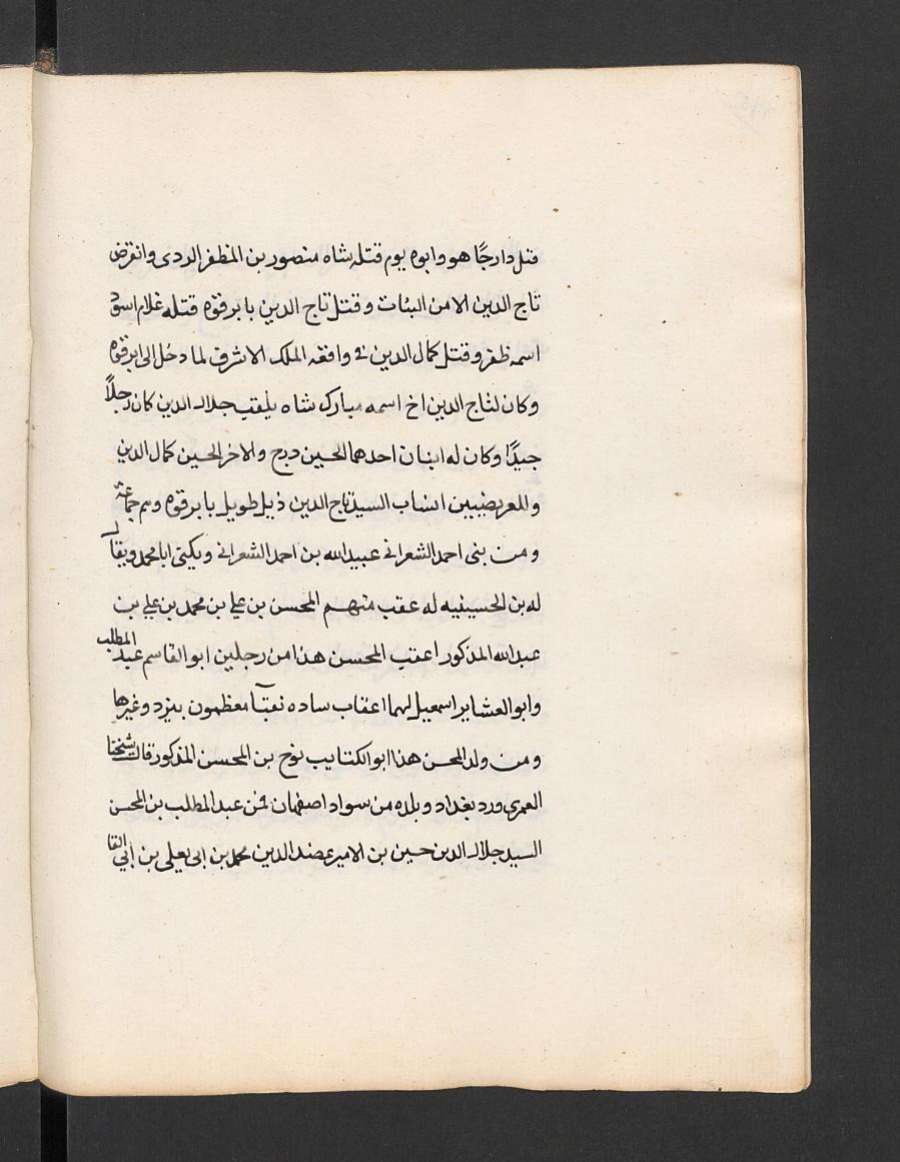 قتل دارجًا هو وابوه يوم قتله شاه منصور بن المظفر الردى وانقرض
تاج الدين الا من البنات وقتل تاج الدين بابرقوه قتله غلام اسود
اسمه ظفر وقتل كمال الدين في وافقه الملك الاشرف لما دخل الى ابرقوه
وكان لتاج الدين اخ اسمه مبارك شاه يلقب جلال الدين كان رجلاً
جيدًا وكان له ابنان احدهما الحسين درج والاخر الحسين كمال الدين
وللعريضيين انساب السيد تاج الدين ذيل طويل بابرقوه وهم جماعة
ومن بنى احمد الشعراني عبيدالله بن احمد الشعراني ويكنى ابا محمد ويقال
له بن الحسينيه له عقب منهم المحسن بن علي بن محمد بن علي بن
عبدالله المذكور اعقب المحسن هذا من رجلين ابو القاسم عبد المطلب
وابو العشاير اسمعيل لهما اعقاب ساده نقبآ معظمون بيزد وغيرها
ومن ولد المحسن هذا ابو الكتايب نوح بن المحسن المذكور قال شيخنا
العمري ورد بغداد وبلده من سواد اصفهان فمن عبد المطلب بن المحسن
السيد جلال الدين حسين بن الامير عضد الدين محمد بن ابى يعلى بن ابي القا